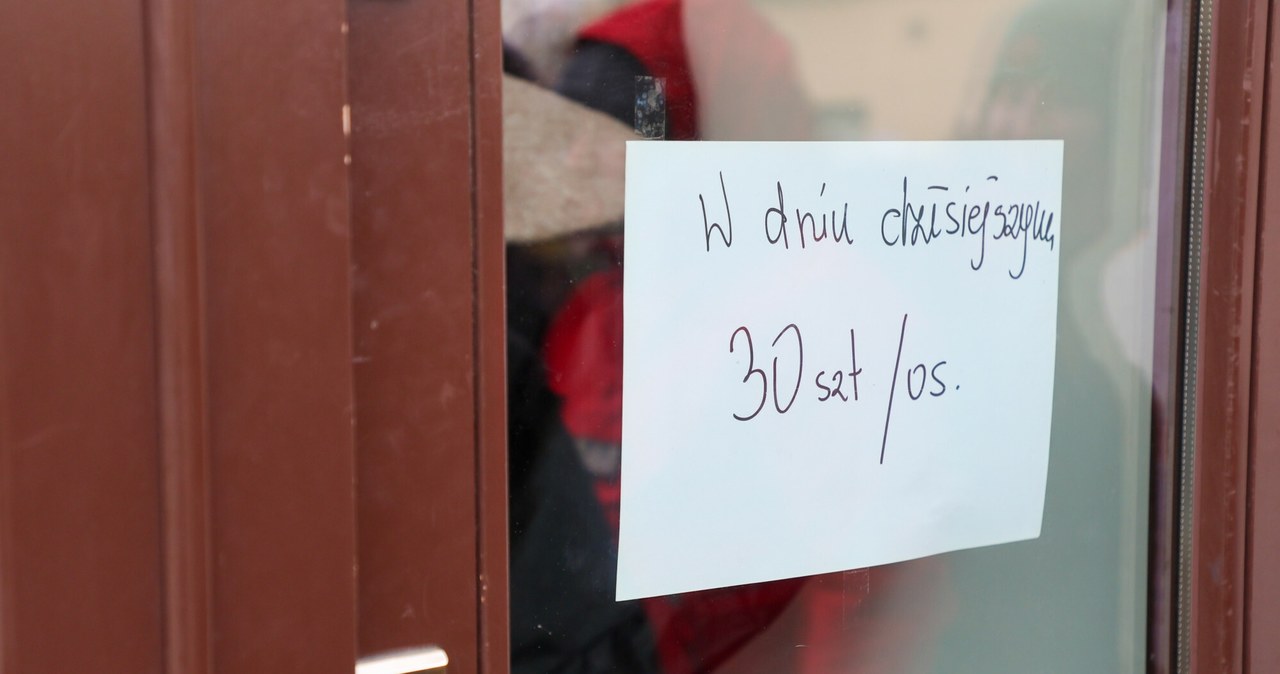 W dniu dzisiejszym
30 szt /os.